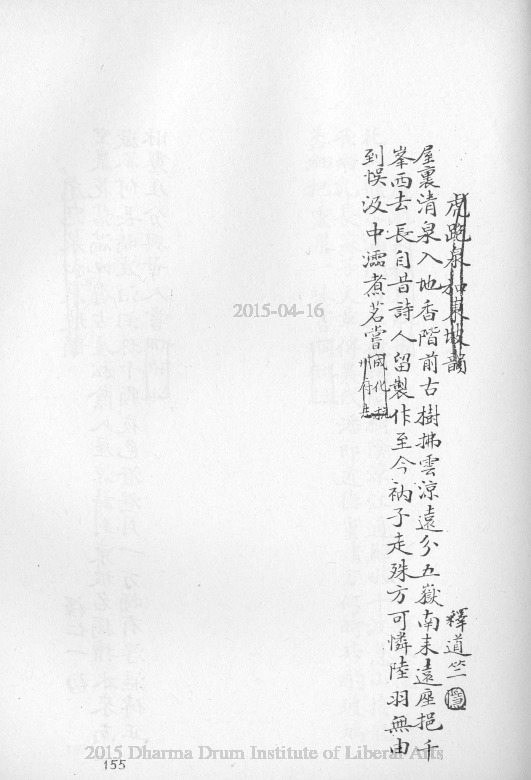 虎跑泉和東坡韻 釋道竺
屋裏清泉入地香階前古樹拂雲涼遠分五嶽南来遠座挹千
峯西去長自昔詩人留製作至今衲子走殊方可憐陸羽無由
到悞汲中濡煮茗嘗成化杭州府志
2015-04-16
2015 Dharma Drum Institute of Liberal Arts
155